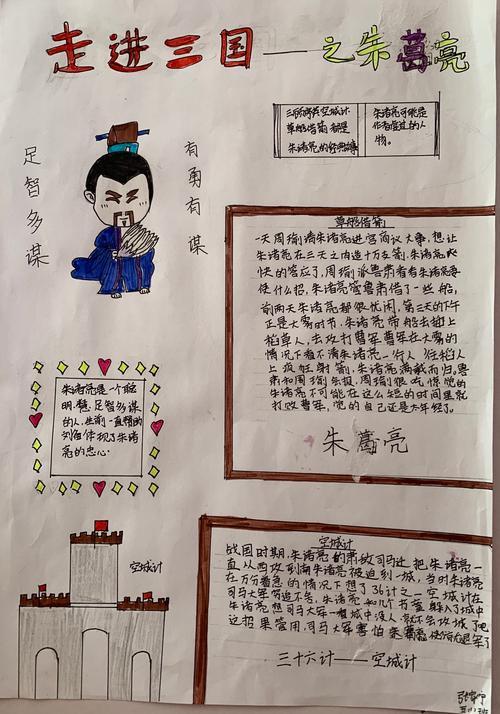 走进三国——之朱葛亮
足智多谋
有勇有谋
三顾茅庐空城计
草船借箭都是
朱诸亮的经典故事
朱诸亮可能是
作者虚过的人
物。
草船借箭
一天周瑜请朱诸亮进宫商议大事,想让
朱诸亮在三天之内造十万支箭,朱诸亮爽
快的答应了,周瑜派鲁肃看看朱诸亮要
使什么招,朱诸亮管鲁肃借了一些船,
前两天朱诸亮都很忧闲,第三天的下午
正是大雾时节,朱诸亮带船去插上
稻草人,去攻打曹军曹军在大雾的
情况下看不清朱诸亮一行人往稻人
上疯狂射箭,朱诸亮满载而归。鲁
肃和周瑜朱报,周瑜很吃惊觉的
朱诸亮不可能在这么短的时间里就
打败曹军,觉的自己还是太年轻了。
朱葛亮
朱诸亮是一个聪
明,慧,足智多谋
的人,生前一直辅助
刘备体现了朱诸
亮的忠心.
空城计
空城计
战国时期,朱诸亮的肃敌司马迁把朱诸亮一
直从西攻到南朱诸亮被迫到一城,当时朱诸亮
在万分着急的情况下想了36计之一空城计在
朱诸亮想司马大军一看城中没人就不会攻城了吧
这招果管用,司马大军害怕
三十六计——空城计